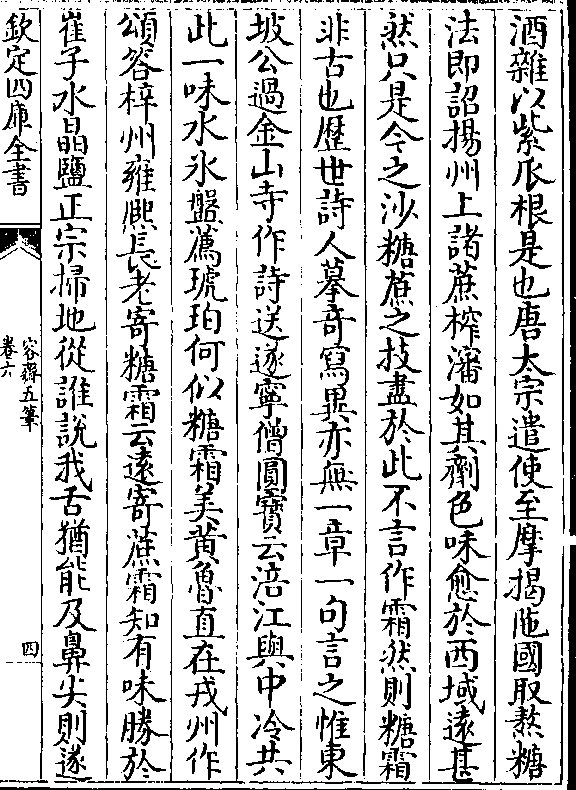 酒雜以紫瓜根是也唐太宗遣使至摩揭陁國取熬糖
法即詔揚州上諸蔗榨瀋如其劑色味愈於西域逺甚
然只是今之沙糖蔗之技盡於此不言作霜然則糖霜
非古也歴世詩人摹奇寫異亦無一章一句言之惟東
坡公過金山寺作詩送遂寧僧圓寳云涪江與中泠共
此一味水氷盤薦琥珀何似糖霜美黄魯直在戎州作
頌答梓州雍熙長老寄糖霜云逺寄蔗霜知有味勝於
崔子水晶鹽正宗掃地從誰說我舌猶能及鼻尖則遂
欽定四庫全書
容齋五筆
卷六
四